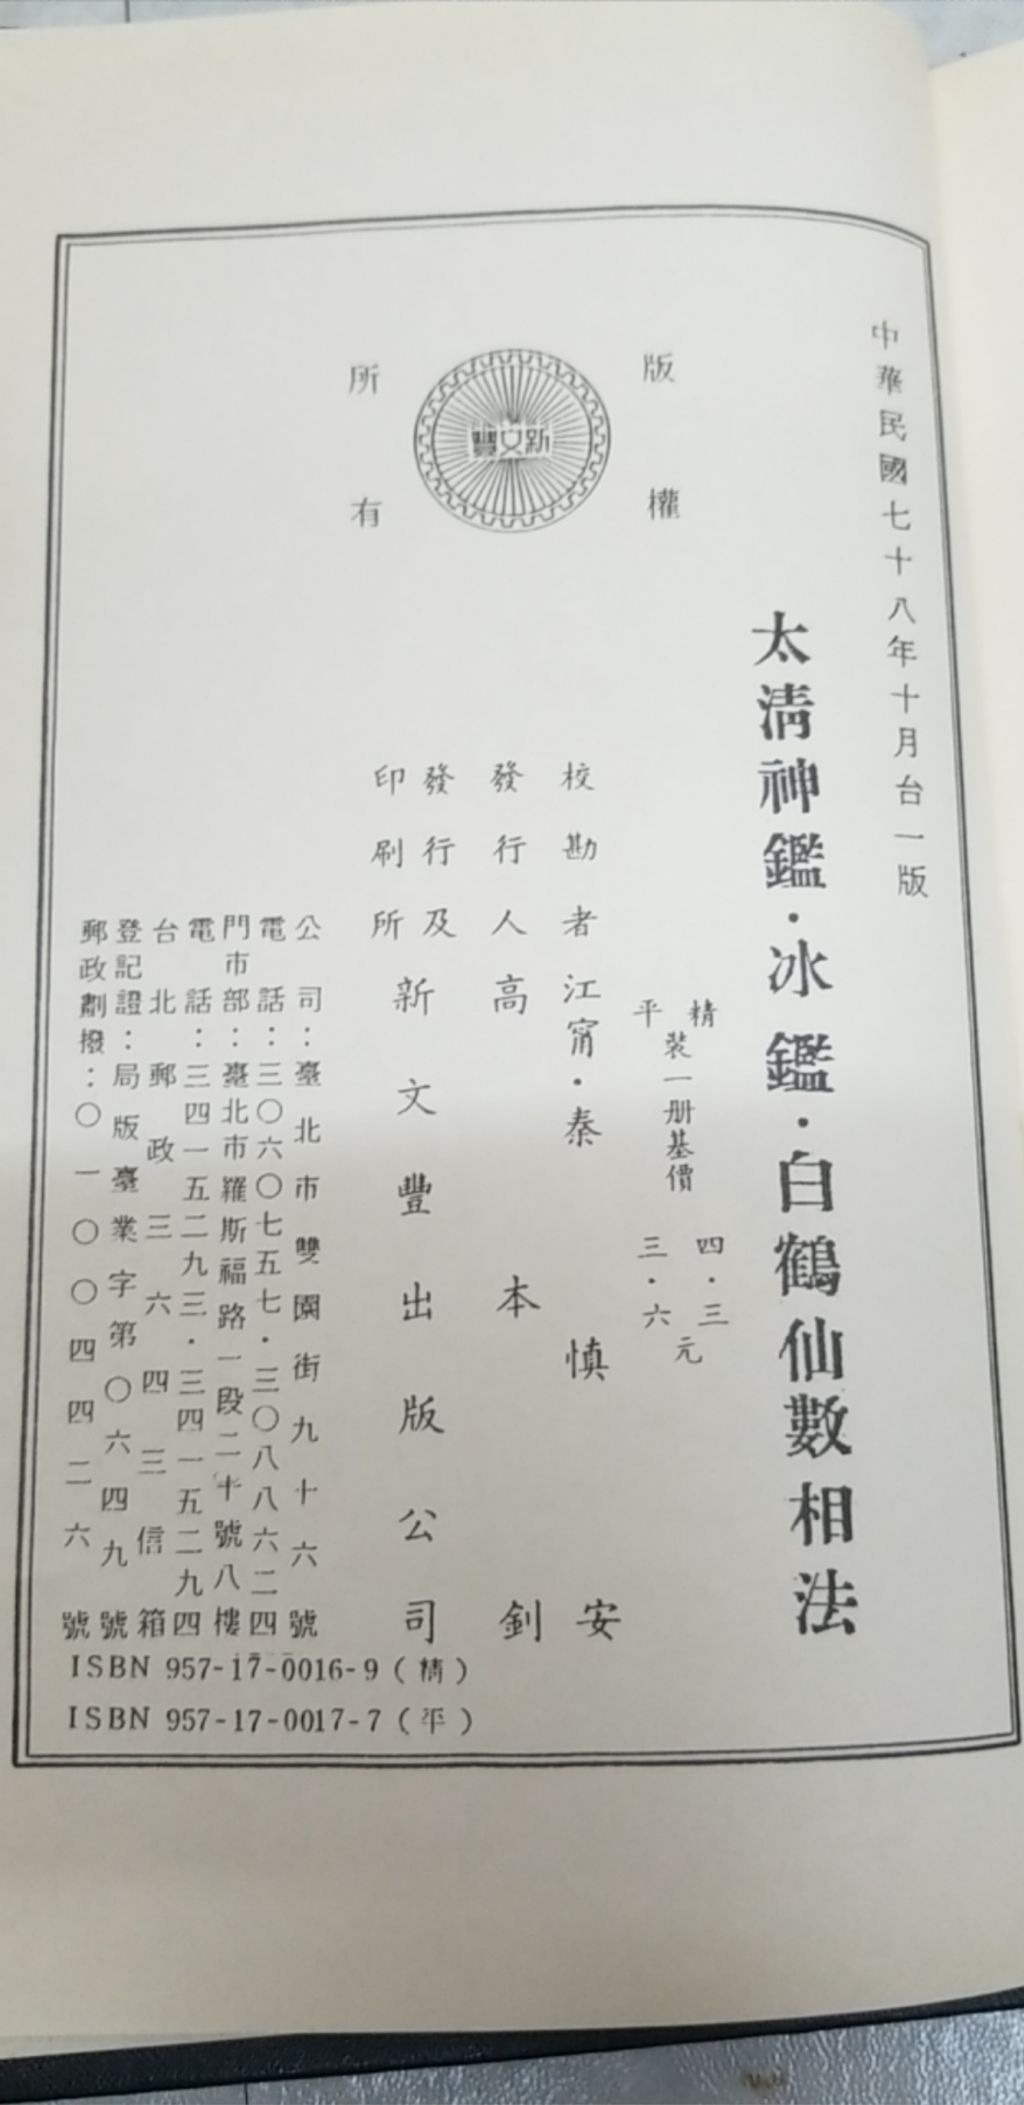 中華民國七十八年十月台一版
太清神鑑·冰鑑·白鶴仙數相法
版權
所有
新文豐
精平裝一册基價 四·三 三·六元
校勘者 江甯·秦慎安
發行人 高本釗
發行及印刷所 新文豐出版公司
公司：臺北市雙園街九十六號
電話：三〇六〇七五七·三〇八八六二四
門市部：臺北市羅斯福路一段二十號八樓
電話：三四一五二九三·三四一五二九四
台北郵政三六四三信箱
登記證：局版臺業字第〇六四九號
郵政劃撥：〇一〇〇四四二六號
ISBN 957-17-0016-9（精）
ISBN 957-17-0017-7（平）